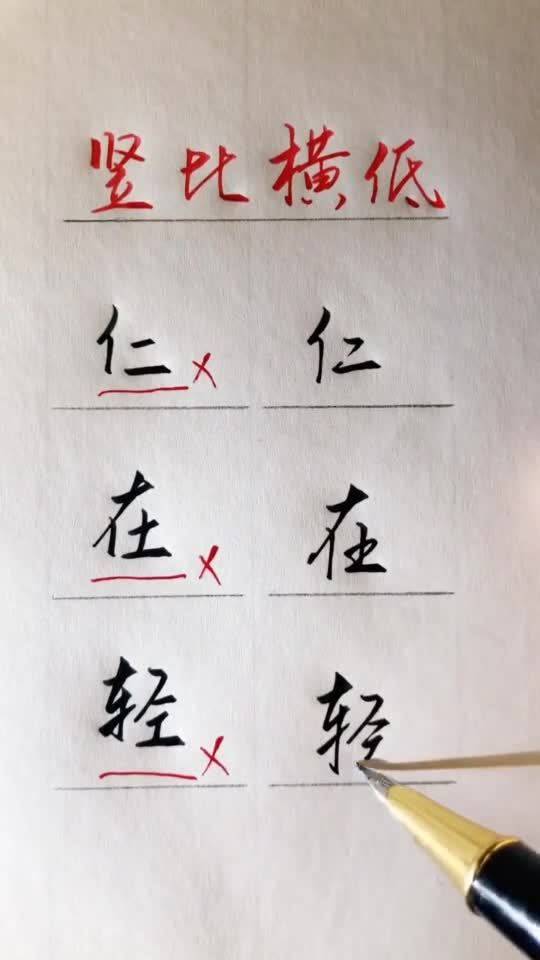 竖比横低
仁 × 仁
在 × 在
轻 × 轻